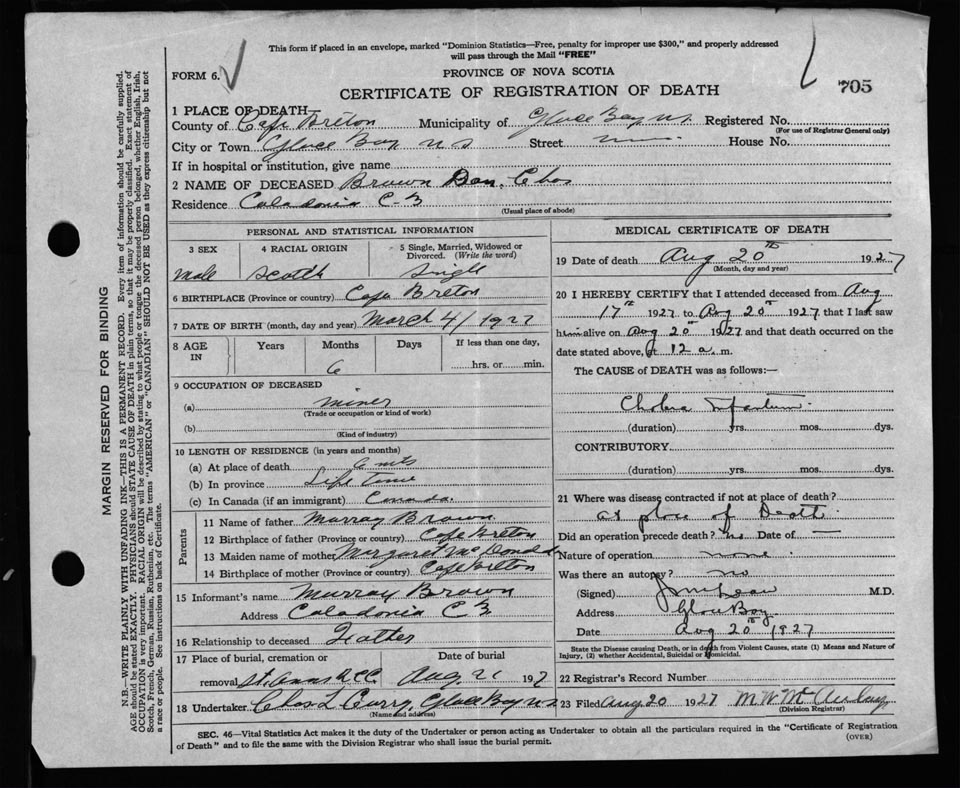 This form if placed in an envelope, marked "Dominion Statistics—Free, penalty for improper use $300," and properly addressed
will pass through the Mail "FREE"
FORM 6.
PROVINCE OF NOVA SCOTIA
CERTIFICATE OF REGISTRATION OF DEATH
705
1 PLACE OF DEATH—
County of Cape Breton Municipality of Glace Bay N.S. Registered No.
(For use of Registrar General only)
City or Town Glace Bay N S Street House No.
If in hospital or institution, give name
2 NAME OF DECEASED Brown Dan. Chas
Residence Caladonia C-B
(Usual place of abode)
PERSONAL AND STATISTICAL INFORMATION
3 SEX 4 RACIAL ORIGIN 5 Single, Married, Widowed or
Divorced. (Write the word)
Male Scotch Single
6 BIRTHPLACE (Province or country) Cape Breton
7 DATE OF BIRTH (month, day and year) March 4/1927
8 AGE IN Years Months Days If less than one day,
6 hrs. or min.
9 OCCUPATION OF DECEASED
(a) miner
(Trade or occupation or kind of work)
(b)
(Kind of industry)
10 LENGTH OF RESIDENCE (in years and months)
(a) At place of death 6 mts
(b) In province Life time
(c) In Canada (if an immigrant) Canada.
Parents
11 Name of father Murray Brown
12 Birthplace of father (Province or country) Cape Breton
13 Maiden name of mother Margaret McDonald
14 Birthplace of mother (Province or country) Cape Breton
15 Informant's name Murray Brown
Address Caladonia C B
16 Relationship to deceased Father
17 Place of burial, cremation or Date of burial
removal St. Anns R.C.C. Aug. 21 192
18 Undertaker Chas L Curry, Glace Bay N.S.
(Name and address)
MEDICAL CERTIFICATE OF DEATH
19 Date of death Aug 20th 1927
(Month, day and year)
20 I HEREBY CERTIFY that I attended deceased from Aug
17th 1927 to Aug 20th 1927 that I last saw
him alive on Aug 20th 1927 and that death occurred on the
date stated above, at 12 a. m.
The CAUSE of DEATH was as follows:—
Cholera
(duration) yrs. mos. dys.
CONTRIBUTORY
(duration) yrs. mos. dys.
21 Where was disease contracted if not at place of death?
at place of Death
Did an operation precede death? no Date of —
Nature of operation none.
Was there an autopsy? no
(Signed) M.D.
Address Glace Bay
Date Aug 20th 1927
State the Disease causing Death, or in death from Violent Causes, state (1) Means and Nature of
Injury, (2) whether Accidental, Suicidal or Homicidal.
22 Registrar's Record Number
23 Filed Aug 20 1927
(Division Registrar)
SEC. 46—Vital Statistics Act makes it the duty of the Undertaker or person acting as Undertaker to obtain all the particulars required in the "Certificate of Registration
of Death" and to file the same with the Division Registrar who shall issue the burial permit.
(OVER)
MARGIN RESERVED FOR BINDING
N.B.—WRITE PLAINLY WITH UNFADING INK—THIS IS A PERMANENT RECORD. Every item of information should be carefully supplied.
AGE should be stated EXACTLY. PHYSICIANS should STATE CAUSE OF DEATH in plain terms, so that it may be properly classified. Exact statement of
OCCUPATION is very important. RACIAL ORIGIN will be described by stating to what people or tongue the deceased person belonged, whether English, Irish,
Scotch, French, German, Russian, Ruthenian, etc. The terms "AMERICAN" or "CANADIAN" SHOULD NOT BE USED as they express citizenship but not
a race or people. See instructions on back of Certificate.